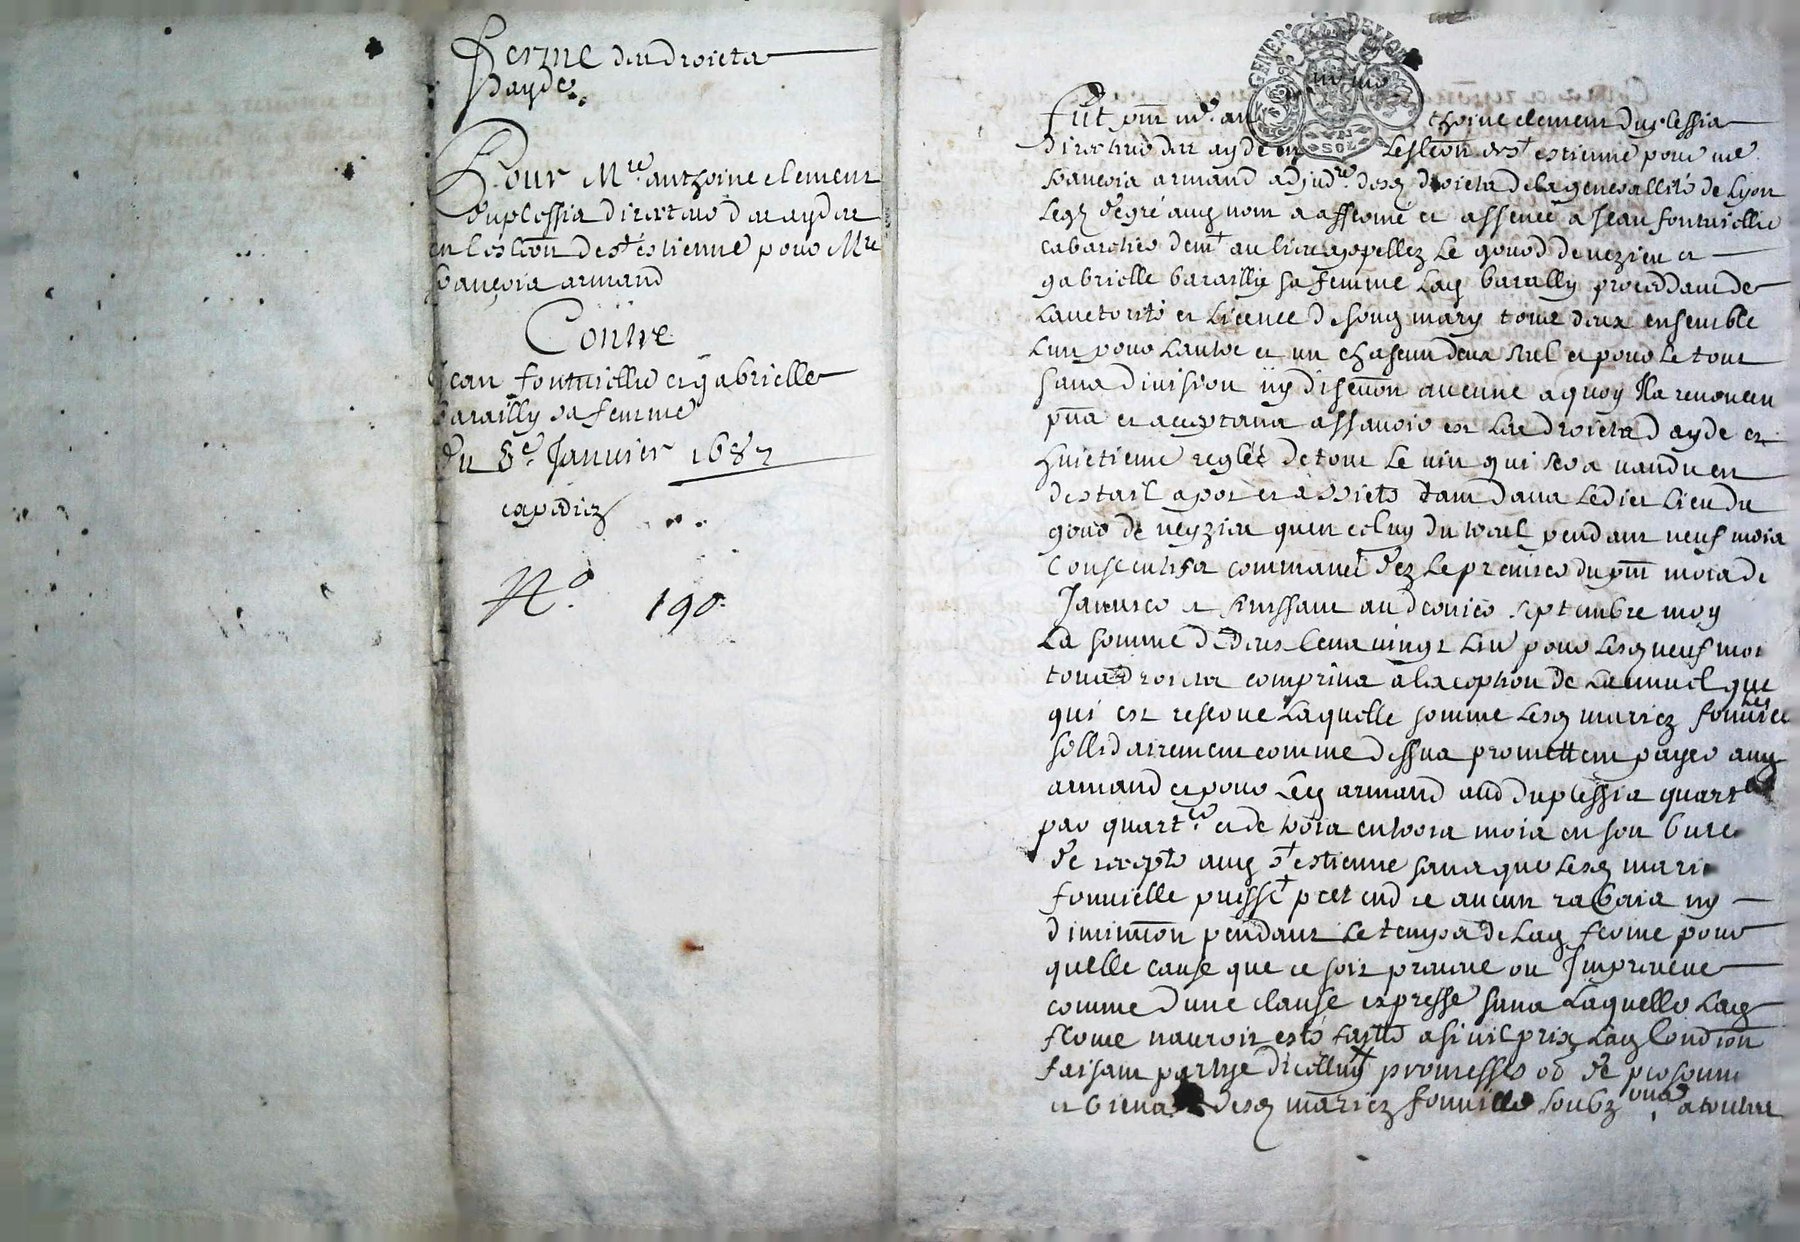 Ferme des droicts
dayde
Pour Mre anthoine clement
duplessis directeur des aydes
en leslèon de st estienne pour Mre
françois armand
Contre
Jean fontvielle et gabrielle
barailly sa femme
du 8e Janvier 1687
expediez
No. 190.
GENER DE LYON
UN SOL
Fut pnt mr an thoine clement duplessis
directeur des aydes en leslèon de st estienne pour me
françois armand adjudre desd droicts de la generallité de Lyon
Leql de gré aud nom a affermé et assencé a Jean fontvielle
cabartier demt au lieu appellez Le gourd de nezieu et
gabrielle barailly sa femme Lad barally procedant de
Lauctorité et Licence de sond mary tous deux ensemble
Lun pour Lautre et un chascun deux seul et pour Le tout
sans division ny discuon aucune a quoy Ils renoncent
pnts et acceptans assavoir est Les droicts dayde et
huictieme reglés de tout Le vin qui sera vandu en
destail a pot et assiete tant dans Ledict Lieu du
gour de neyzieu quen celuy du pendant neuf mois
Consecutifs commancé dez Le premier du pnt mois de
Janvier et finissant au dernier septembre moy
La somme de cens vingt Liv pour Lesd neuf moi
tous droicts comprins a la reption de Lannuel
qui est reservé Laquelle somme Lesd mariez fontvielle
sollidairement comme dessus promettent payer aud
armand et pour Led armand aud duplessis quart
par quartr et de trois en trois mois en son bure
de recepte aud st estienne sans que Lesd marie
fonvielle puisst pretendre aucun rabais ny
diminuon pendant Le temps de Lad ferme pour
quelle cause que ce soit preveue ou Impreveue
comme dune clause expresse sans Laquelle Lad
ferme nauroit esté faitte a si vil prix Lad Condion
faisant partye dicelluy promesses ob de personne
et biens desd mariez fonvielle soubz a touttes